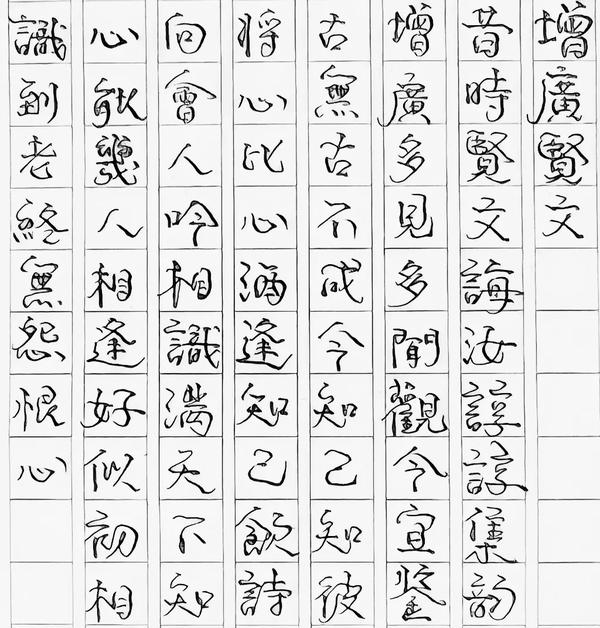 增廣賢文
昔時賢文誨汝諄諄集韵
增廣多見多聞觀今宜鑒
古無古不成今知己知彼
將心比心酒逢知己飲詩
向會人吟相識滿天下知
心能幾人相逢好似初相
識到老終無怨恨心